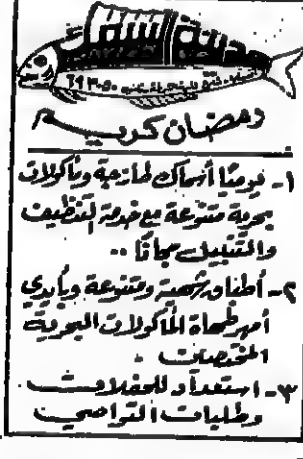 مدينة السمك
رمضان كريم
١- يوميًا أسماك طازجة ومأكولات
بحرية متنوعة مع خدمة التنظيف
والتتبيل مجانًا ..
٢- أطباق شهية ومتنوعة وبأيدي
أمهر طهاة المأكولات البحرية
المختصين .
٣- استعداد للحفلات
وطلبات النواصي